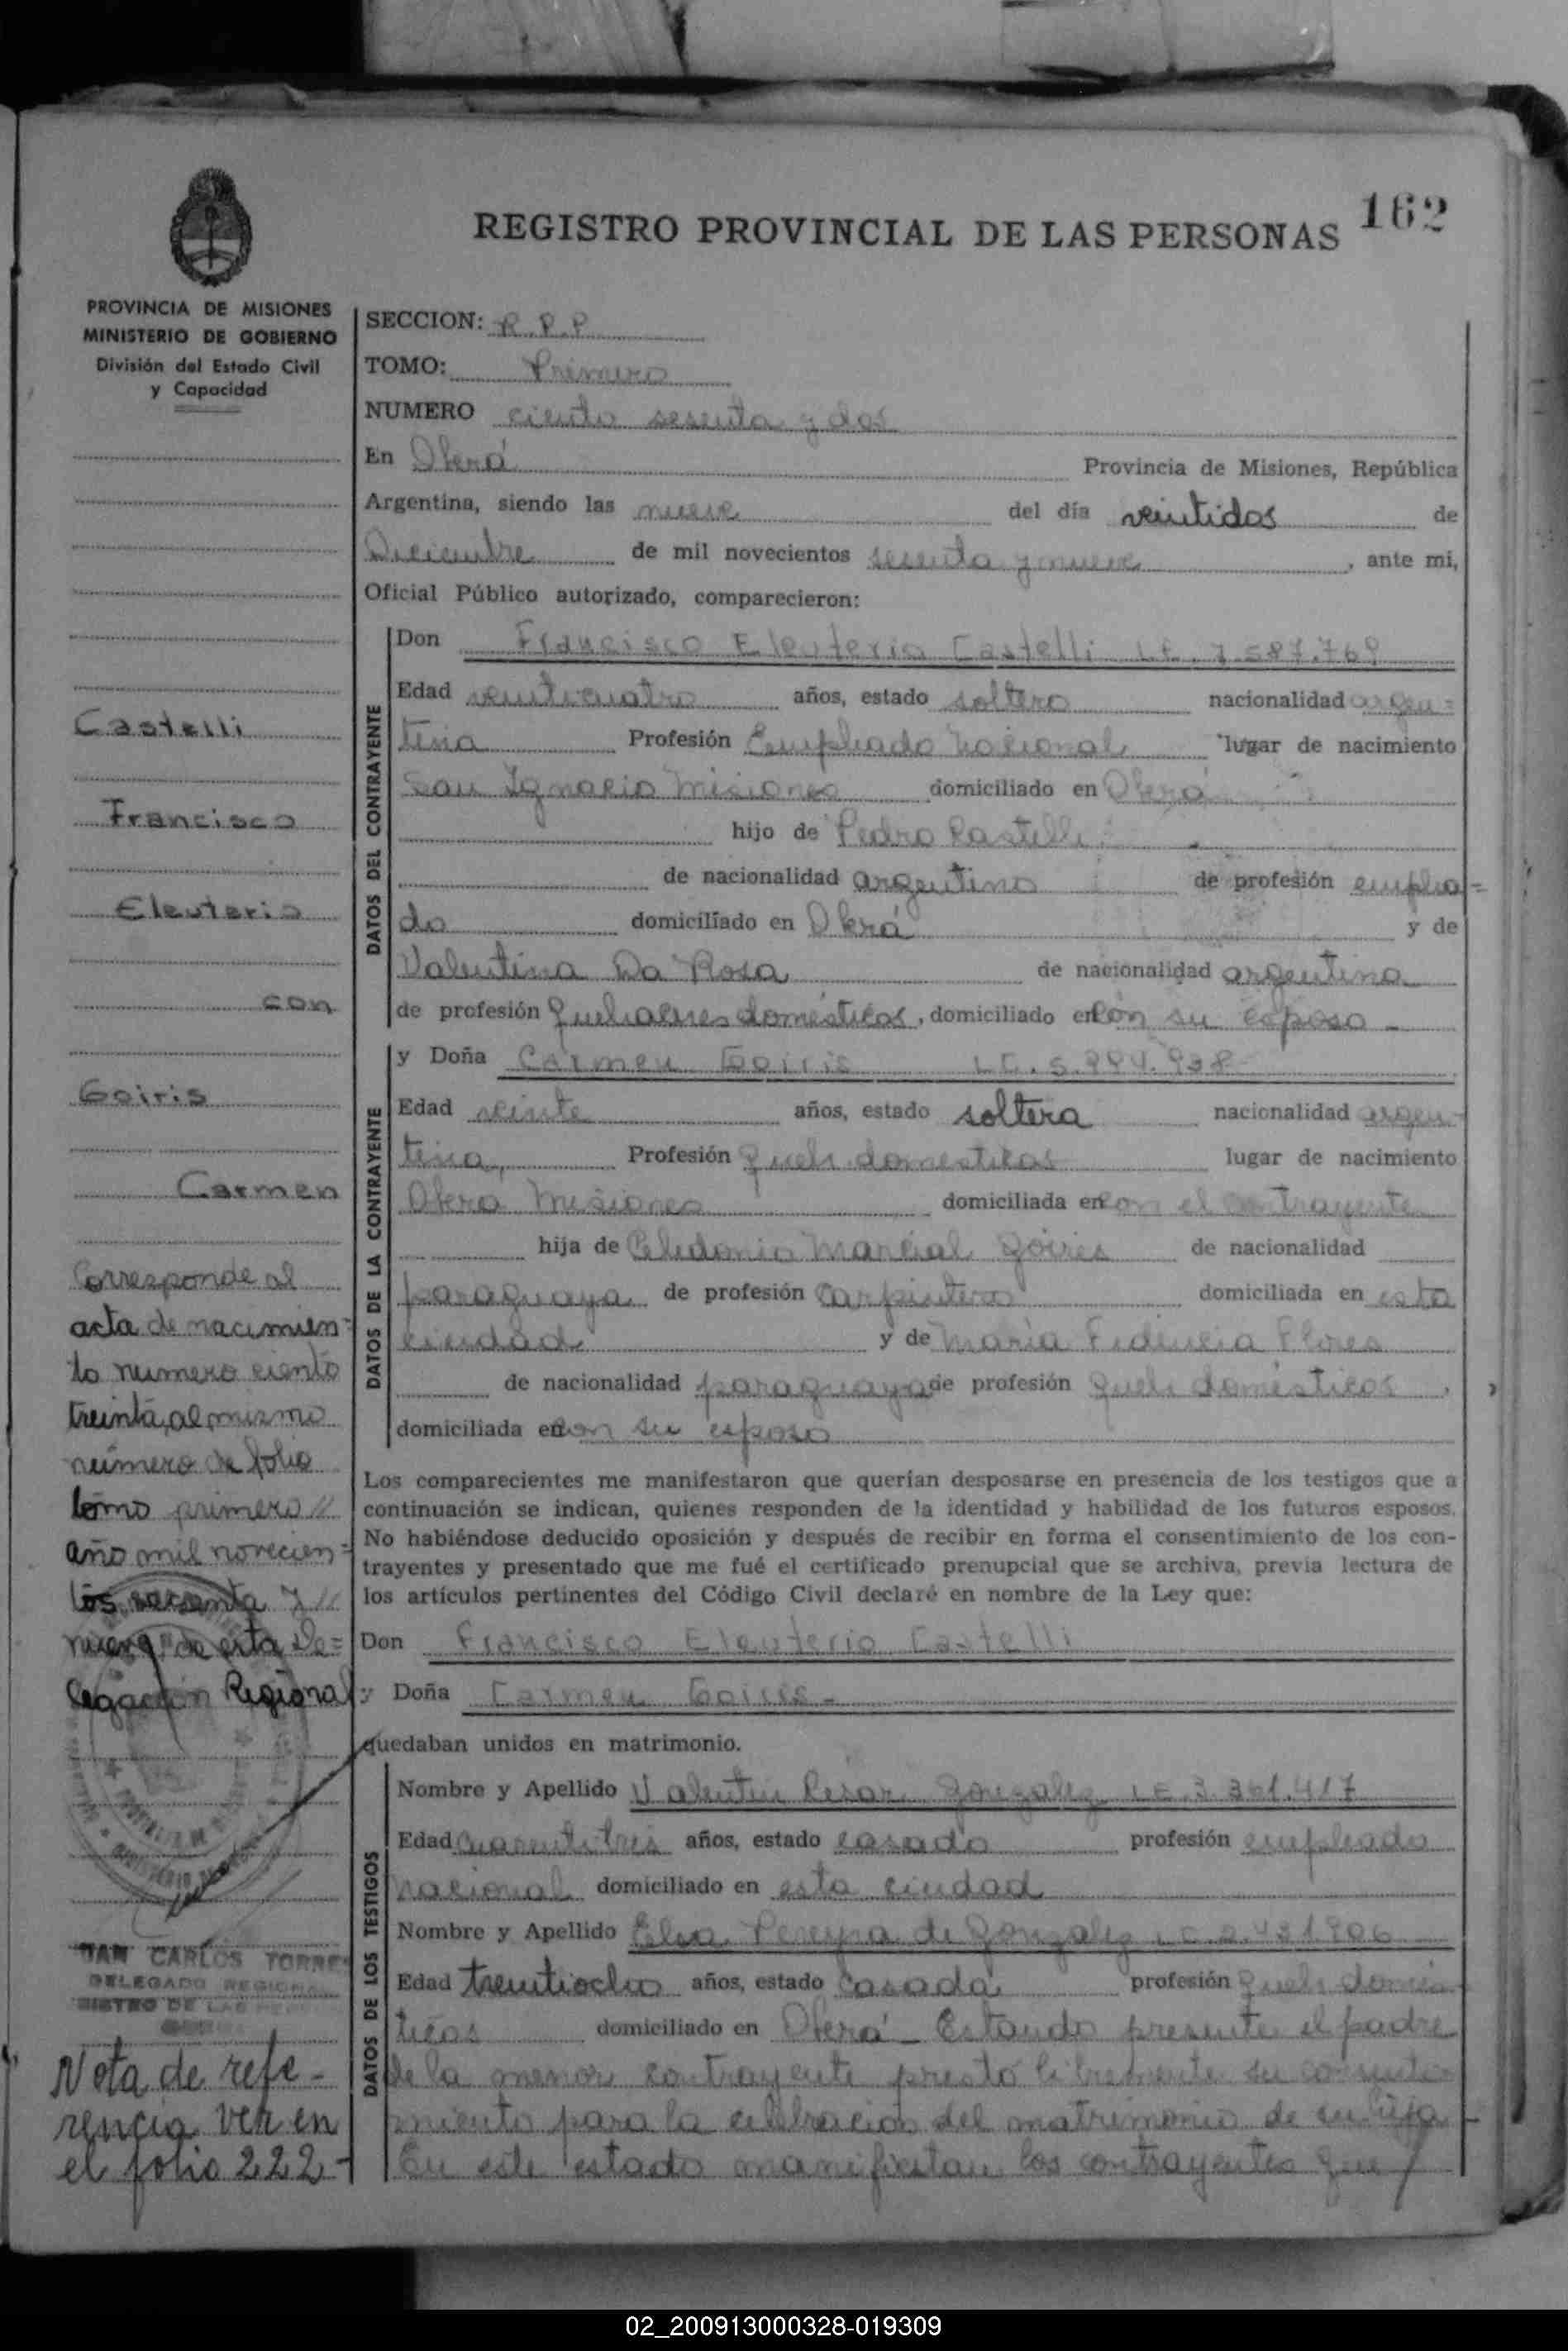 162
REGISTRO PROVINCIAL DE LAS PERSONAS
PROVINCIA DE MISIONES
MINISTERIO DE GOBIERNO
División del Estado Civil
y Capacidad
Castelli
Francisco
Eleuterio
con
Goiris
Carmen
Corresponde al
acta de nacimien=
to numero ciento
treinta, al mismo
número de folio
tomo primero //
año mil novecien=
tos sesenta y //
nueve de esta De=
legación Regional
CARLOS TORRES
DELEGADO REGIONAL
Nota de refe-
rencia ver en
el folio 222-
SECCION: R.P.P
TOMO: Primero
NUMERO ciento sesenta y dos
En Oberá Provincia de Misiones, República
Argentina, siendo las nueve del día veintidos de
Diciembre de mil novecientos sesenta y nueve, ante mi,
Oficial Público autorizado, comparecieron:
DATOS DEL CONTRAYENTE
Don Francisco Eleuterio Castelli L.E. 7.587.769
Edad veinticuatro años, estado soltero nacionalidad argen=
tina Profesión Empleado Nacional lugar de nacimiento
San Ignacio Misiones domiciliado en Oberá
hijo de Pedro Castelli
de nacionalidad argentino de profesión emplea=
do domiciliado en Oberá y de
Valentina Da Rosa de nacionalidad argentina
de profesión Quehaceres domésticos, domiciliado en con su esposo -
DATOS DE LA CONTRAYENTE
y Doña Carmen Goiris L.C. 5.994.938
Edad veinte años, estado soltera nacionalidad argen-
tina, Profesión Queh. domesticos lugar de nacimiento
Obera Misiones domiciliada en con el contrayente
hija de Celedonio Marcial Goiris de nacionalidad
paraguaya de profesión Carpintero domiciliada en esta
ciudad y de María Fidencia Flores
de nacionalidad paraguaya de profesión Queh domésticos,
domiciliada en con su esposo
Los comparecientes me manifestaron que querían desposarse en presencia de los testigos que a
continuación se indican, quienes responden de la identidad y habilidad de los futuros esposos.
No habiéndose deducido oposición y después de recibir en forma el consentimiento de los con-
trayentes y presentado que me fué el certificado prenupcial que se archiva, previa lectura de
los artículos pertinentes del Código Civil declaré en nombre de la Ley que:
Don Francisco Eleuterio Castelli
y Doña Carmen Goiris -
quedaban unidos en matrimonio.
DATOS DE LOS TESTIGOS
Nombre y Apellido Valentin Cesar Gonzalez L.E. 3.361.417
Edad cuarentitres años, estado casado profesión empleado
nacional domiciliado en esta ciudad
Nombre y Apellido Elva Pereyra de Gonzalez L.C. 2.431.906
Edad treintiocho años, estado Casada profesión Queh domés-
ticos domiciliado en Oberá - Estando presente el padre
de la menor contrayente prestó libremente su consenti-
miento para la celebracion del matrimonio de su hija -
En este estado manifiestan los contrayentes que
02_200913000328-019309